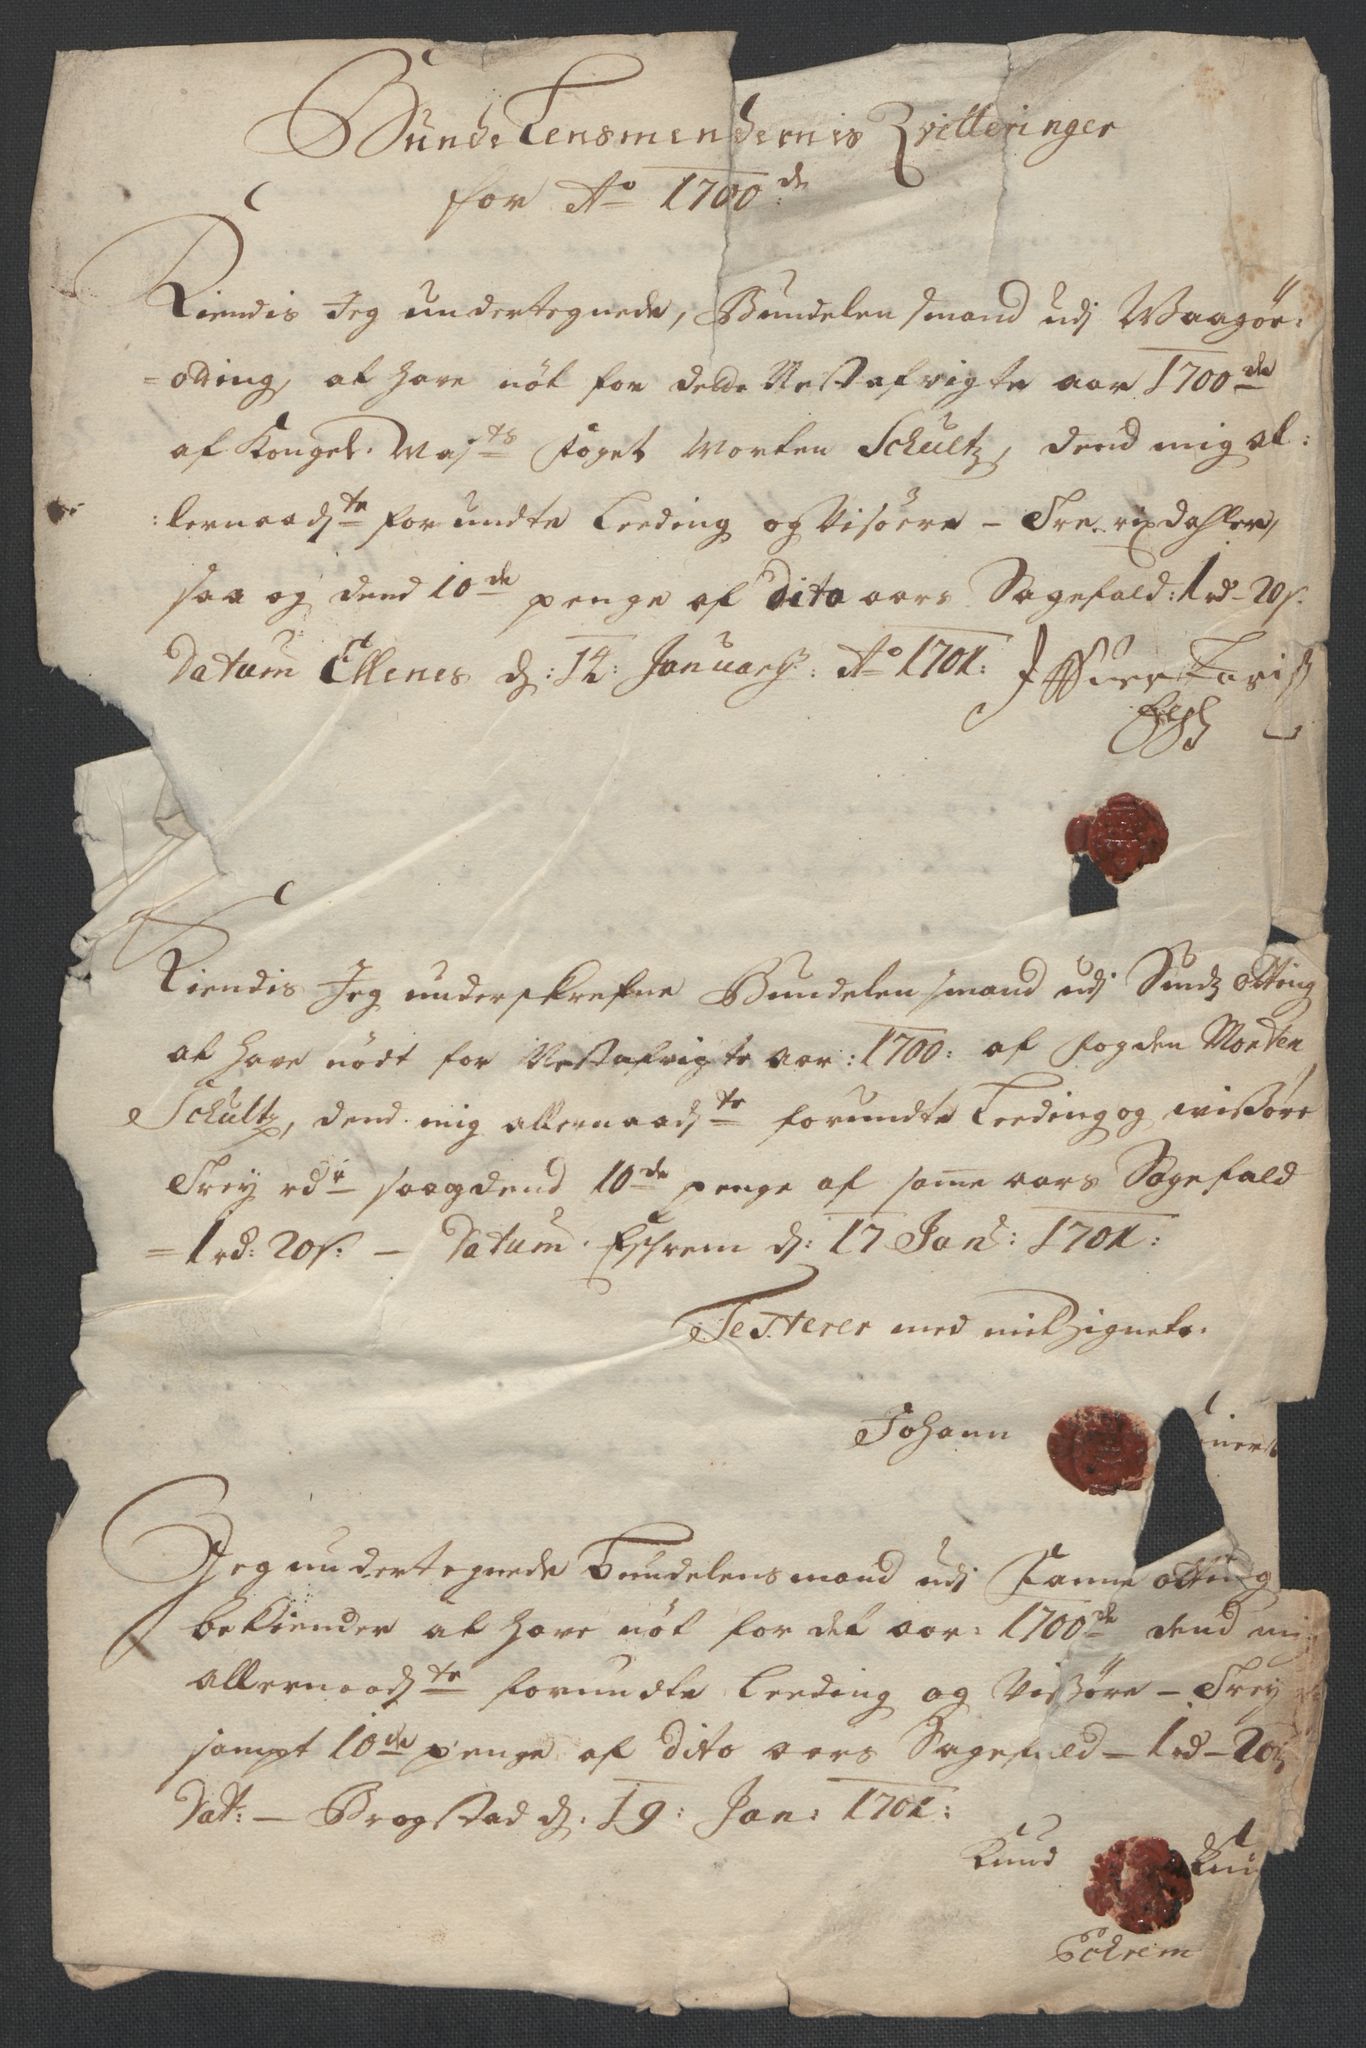 Bunde Lensmendernis Qvitteringer
for Ao 1700de
Kiendis Jeg undertegnede, Bundelensmand udj Waagøe:
=otting, at have nöt for dette Nestafvigte aar 1700de
af Kongel. Majts foget Morten Schultz, dend mig al:
:lernaadste forundte Leeding og Visöere – Tre rixdahler,
saa og dend 10de penge af dito aars Sagefald: 1 rd – 20 s.
Datum Ellenes d: 14: Januarij: Ao 1701:
Kiendis Jeg underskrefne Bundelensmand udj Sunds otting
at have nödt for Nestafvigte aar: 1700: af fogden Morten
Schultz, dend mig allernaadste forundte Leeding og wissöre
Trey rdr saa og dend 10de penge af same aars Sagefald
= 1 rd: 20 s: – Datum Eschrem d: 17 Jan: 1701:
Testerer med mit Zignete.
Johann
Jeg undertegnede Bundelensmand udj Fanne otting
bekiender at have nöt for det aar: 1700de dend mi
allernaadste forundte Leeding og Vissöre – Trey
sampt 10de penge af dito aars Sagefald – 1 rd – 20 s
Dat: – Brogstad d: 19: Jan: 1701:
Knud
Eckrem